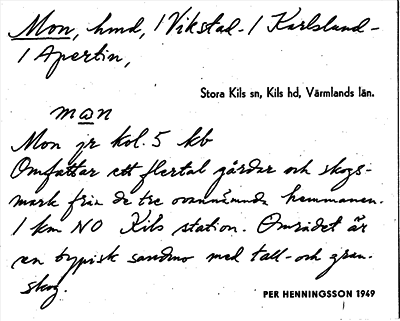 Mon, hmd, /Vikstad-/Karlslund-
/Apertin,
Stora Kils sn, Kils hd, Värmlands län.
man
Mon jr kol. 5 kb
Omfattar ett flertal gårdar och skogs-
mark från de tre ovannämnda hemmanen.
1 km NO Kils station. Området är
en typisk sandmo med tall- och gran-
skog.
PER HENNINGSSON 1949